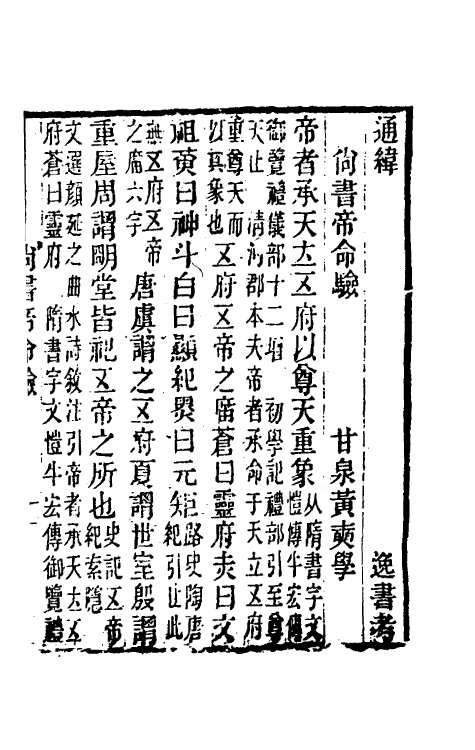 通緯　逸書考
尚書帝命驗　甘泉黃奭學
帝者承天立五府以尊天重象从隋書宇文愷傳牛宏傳
御覽禮儀部十二垣　初學記禮部引至尊天止　清河郡本夫帝者承命于天立五府
重尊天而以真象也　五府五帝之廟蒼曰靈府赤曰文
祖黃曰神斗白曰顯紀黑曰元矩路史陶唐紀引止此
無五府五帝之廟六字　唐虞謂之五府夏謂世室殷謂
重屋周謂明堂皆祀五帝之所也史記五帝紀索隱
文選顏延之曲水詩敘注引帝者承天立五府蒼曰靈府　隋書宇文愷牛宏傳御覽禮
尚書帝命驗　一